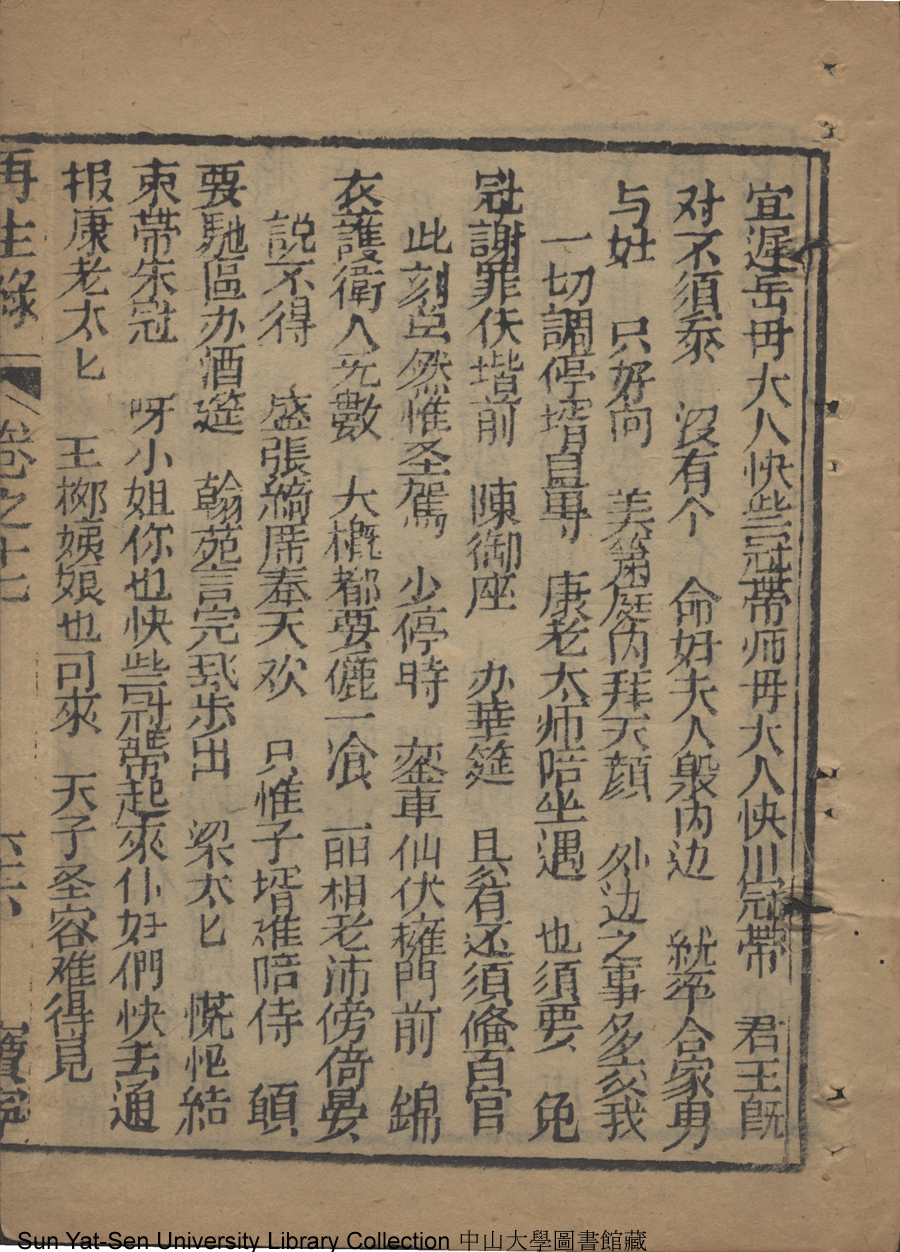 宜遲岳毋大人快些冠帶师毋大人快川冠帶 君王旣
对不須泰 沒有个 命妇夫人殷内边 統率合家男
与女 只好向 美第庭内拜天顔 外边之事多亥我
一切調停壻自專 康老太师陪坐遇 也須要 免
冠謝罪伏堦前 陳御座 办華筵 具有还須偹百官
此刻虽然惟圣駕 少停時 銮車仙仗擁門前 錦
衣護衛人无數 大概都要儷一飡 丽相老沛傍倚晏
説不得 盛張綺席奉天欢 只惟子壻难陪侍 頭
要馳區办酒筵 翰苑言完飛步出 梁太匕 慌忙結
束帶朱冠 呀小姐你也快些冠帶起來仆妇們快去通
报康老太匕 王柳姨娘也可來 天子圣容难得見
再生緣 卷之十七 寳寧
Sun Yat-Sen University Library Collection 中山大學圖書館藏